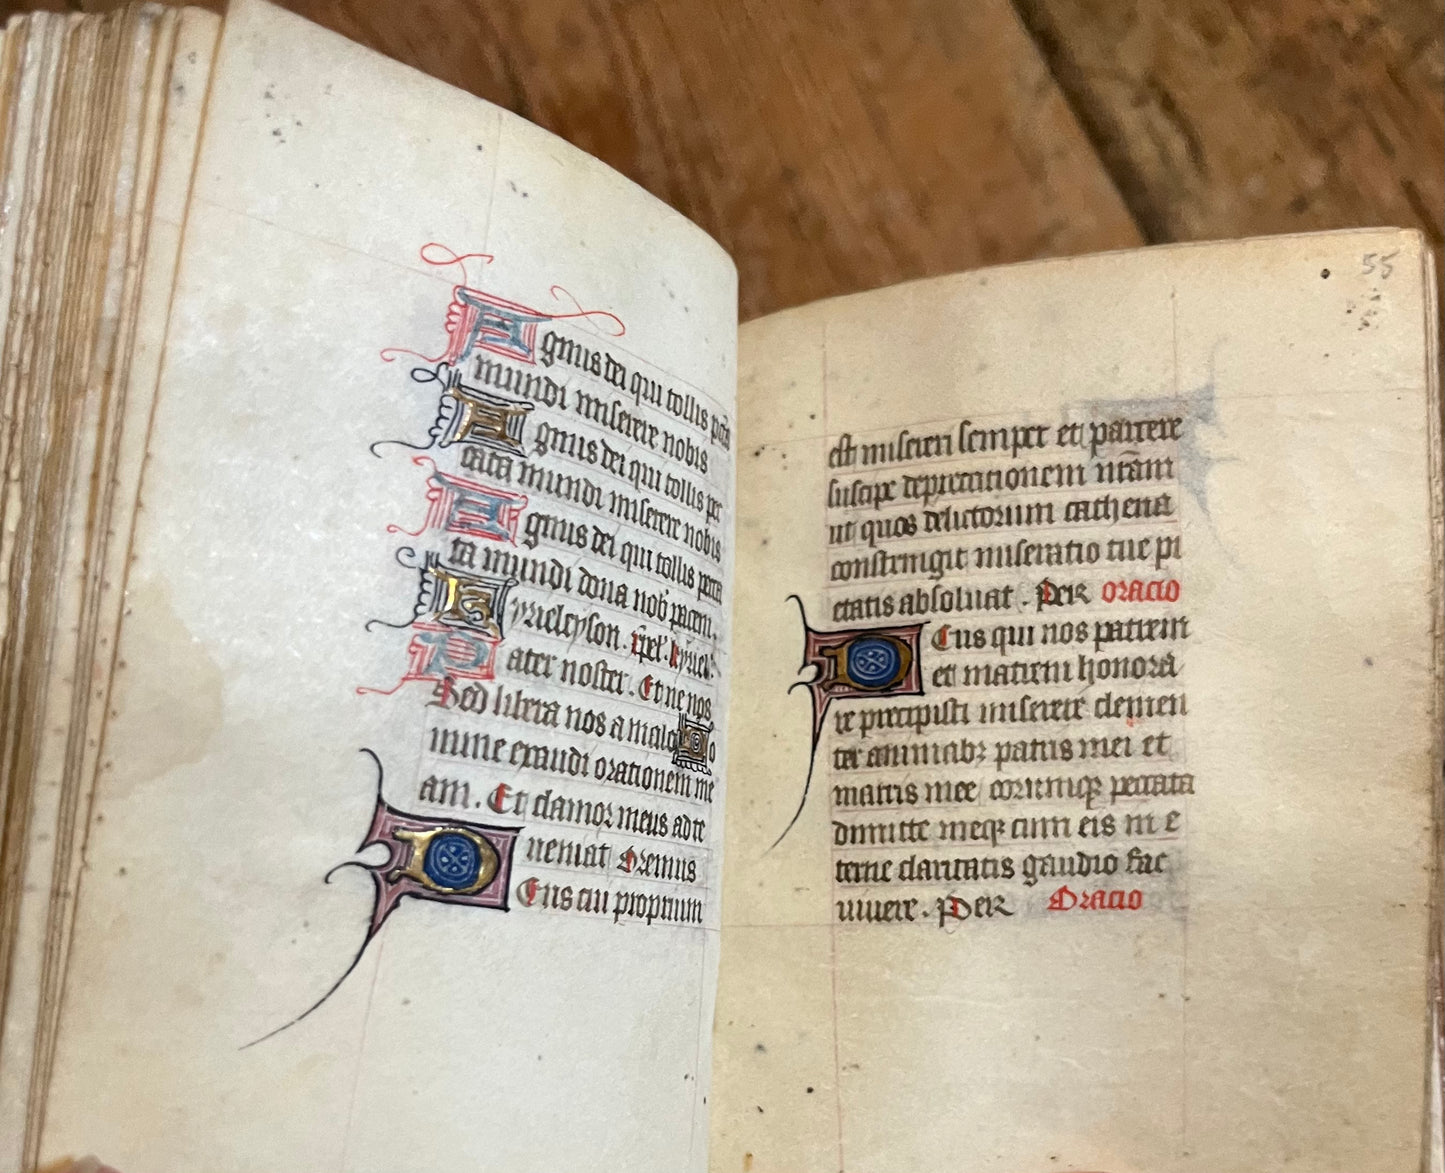 Agnus dei qui tollis pcca
mundi miserere nobis
Agnus dei qui tollis pec
cata mundi miserere nobis
Agnus dei qui tollis pecca
ta mundi dona nob' pacem.
Kyrieleyson. xpel'. kyriel'.
Pater noster. Et ne nos
Sed libera nos a malo Do
mine exaudi orationem me
am. Et clamor meus ad te
veniat Oremus
Deus cui proprium
55
est misereri semper et parcere
suscipe deprecationem nr̄am
ut quos delictorum cathena
constringit miseratio tue pi
etatis absoluat. Per oracio
Deus qui nos patrem
et matrem honora
re precepisti miserere clemen
ter animabꝫ patris mei et
matris mee eorumqꝫ peccata
dimitte meqꝫ cum eis in e
terne claritatis gaudio fac
vivere. Per Oracio